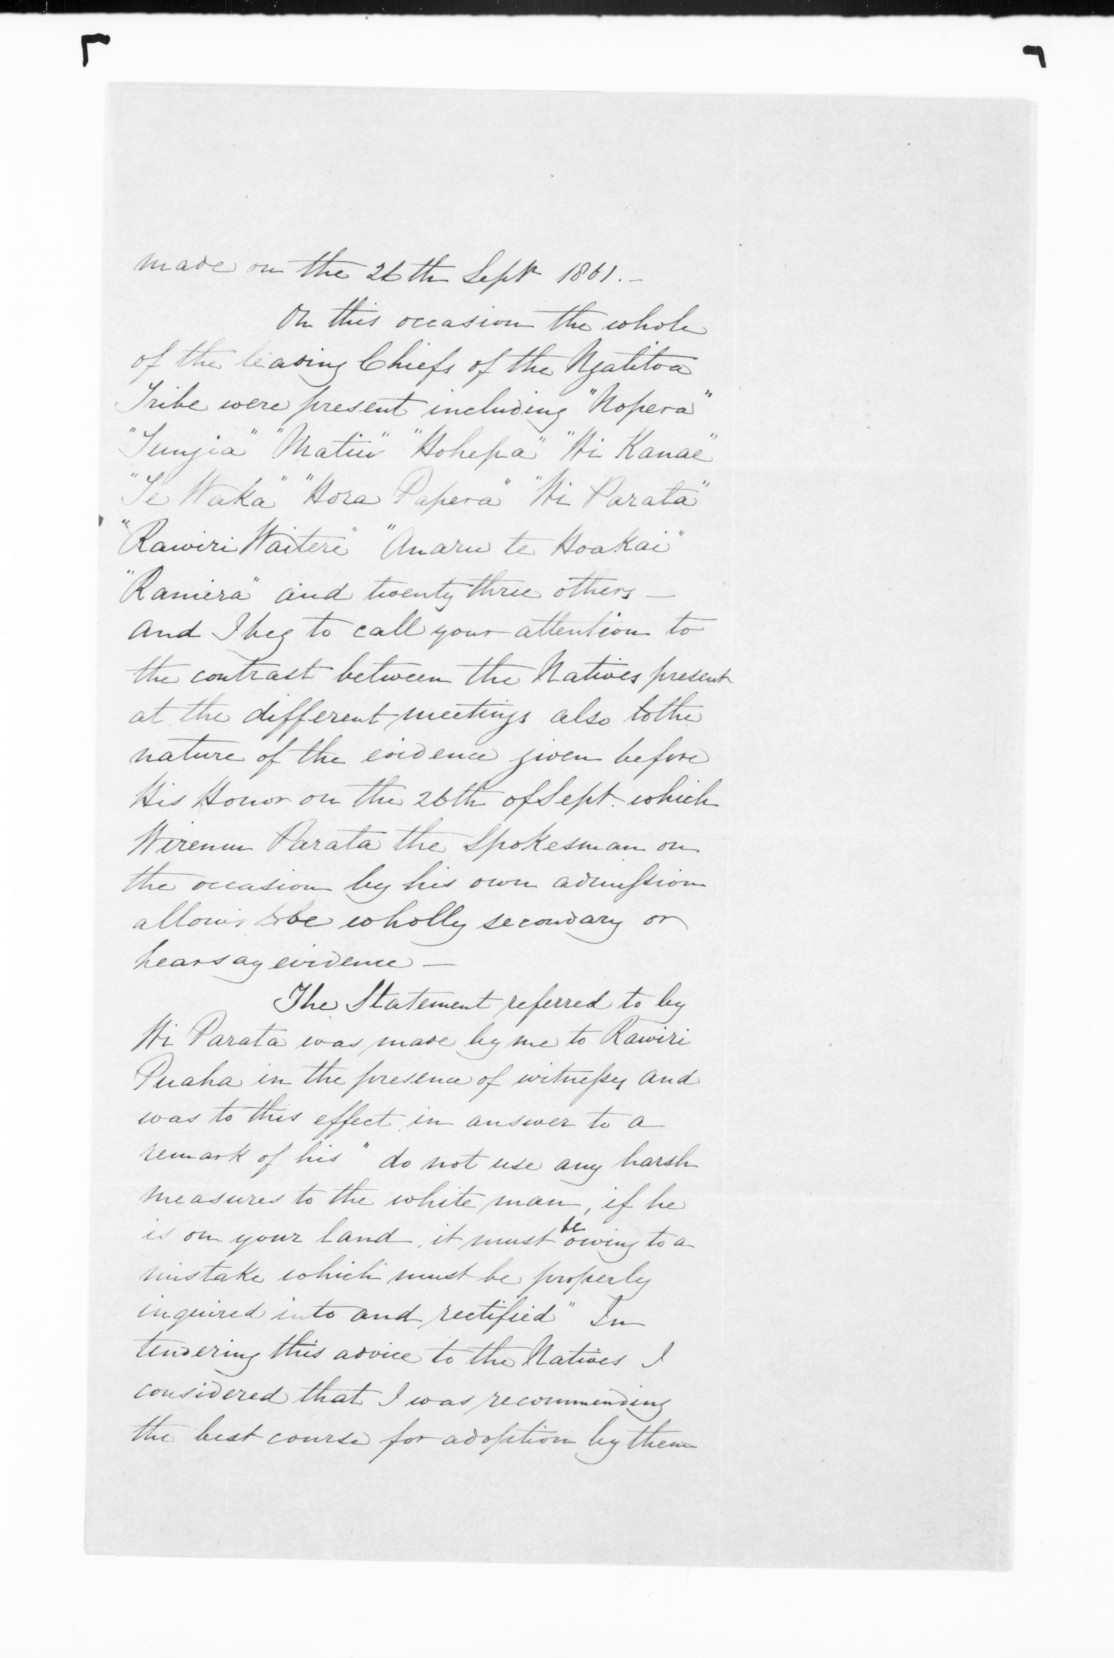 made on the 26th Sept 1861.—
On this occasion the whole
of the leading Chiefs of the Ngatitoa
Tribe were present including "Nopera"
"Tungia" "Matiu" "Hohepa" "Wi Kanae"
"Te Waka" "Hora Papera" "Wi Parata"
"Rawiri Waitere" "Anaru te Hoakai"
"Raniera" and twenty three others —
And I beg to call your attention to
the contrast between the Natives present
at the different meetings also to the
nature of the evidence given before
His Honor on the 26th of Sept. which
Wiremu Parata the Spokesman on
the occasion by his own admission
allows to be wholly secondary or
hearsay evidence —
The Statement referred to by
Wi Parata was made by me to Rawiri
Puaha in the presence of witnesses and
was to this effect in answer to a
remark of his "do not use any harsh
measures to the white man, if he
is on your land, it must be owing to a
mistake which must be properly
inquired into and rectified" In
tendering this advice to the Natives I
considered that I was recommending
the best course for adoption by them